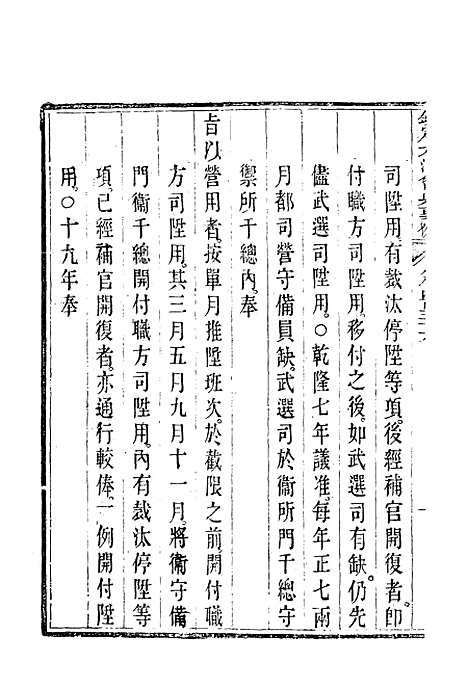 司陞用。有裁汰停陞等項。後經補官開復者。卽
付職方司陞用。移付之後。如武選司有缺。仍先
儘武選司陞用。○乾隆七年議准。每年正七兩
月都司營守備員缺。武選司於衞所門千總守
禦所千總內。奉
旨以營用者。按單月推陞班次。於截限之前。開付職
方司陞用。其三月五月九月十一月。將衞守備
門衞千總開付職方司陞用。內有裁汰停陞等
項。已經補官開復者。亦通行較俸。一例開付陞
用。○十九年奉